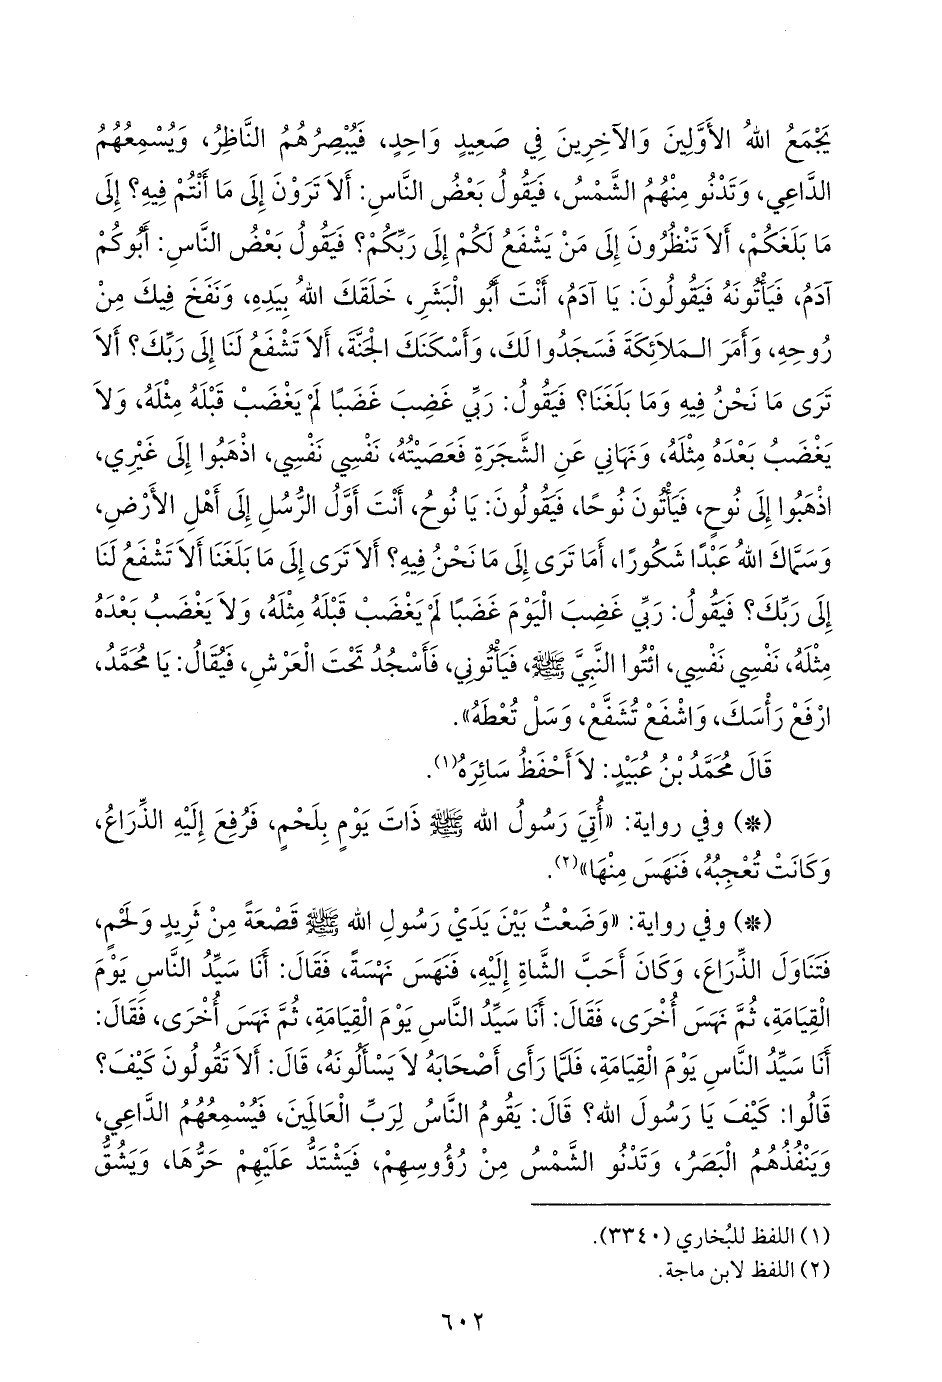 يَجْمَعُ اللهُ الأَوَّلِينَ وَالآخِرِينَ فِي صَعِيدٍ وَاحِدٍ، فَيُبْصِرُهُمُ النَّاظِرُ، وَيُسْمِعُهُمُ
الدَّاعِي، وَتَدْنُو مِنْهُمُ الشَّمْسُ، فَيَقُولُ بَعْضُ النَّاسِ: أَلاَ تَرَوْنَ إِلَى مَا أَنْتُمْ فِيهِ؟ إِلَى
مَا بَلَغَكُمْ، أَلاَ تَنْظُرُونَ إِلَى مَنْ يَشْفَعُ لَكُمْ إِلَى رَبِّكُمْ؟ فَيَقُولُ بَعْضُ النَّاسِ: أَبُوكُمْ
آدَمُ، فَيَأْتُونَهُ فَيَقُولُونَ: يَا آدَمُ، أَنْتَ أَبُو الْبَشَرِ، خَلَقَكَ اللهُ بِيَدِهِ، وَنَفَخَ فِيكَ مِنْ
رُوحِهِ، وَأَمَرَ الْمَلاَئِكَةَ فَسَجَدُوا لَكَ، وَأَسْكَنَكَ الْجَنَّةَ، أَلاَ تَشْفَعُ لَنَا إِلَى رَبِّكَ؟ أَلاَ
تَرَى مَا نَحْنُ فِيهِ وَمَا بَلَغَنَا؟ فَيَقُولُ: رَبِّي غَضِبَ غَضَبًا لَمْ يَغْضَبْ قَبْلَهُ مِثْلَهُ، وَلاَ
يَغْضَبُ بَعْدَهُ مِثْلَهُ، وَنَهَانِي عَنِ الشَّجَرَةِ فَعَصَيْتُهُ، نَفْسِي نَفْسِي، اذْهَبُوا إِلَى غَيْرِي،
اذْهَبُوا إِلَى نُوحٍ، فَيَأْتُونَ نُوحًا، فَيَقُولُونَ: يَا نُوحُ، أَنْتَ أَوَّلُ الرُّسُلِ إِلَى أَهْلِ الأَرْضِ،
وَسَمَّاكَ اللهُ عَبْدًا شَكُورًا، أَمَا تَرَى إِلَى مَا نَحْنُ فِيهِ؟ أَلاَ تَرَى إِلَى مَا بَلَغَنَا أَلاَ تَشْفَعُ لَنَا
إِلَى رَبِّكَ؟ فَيَقُولُ: رَبِّي غَضِبَ الْيَوْمَ غَضَبًا لَمْ يَغْضَبْ قَبْلَهُ مِثْلَهُ، وَلاَ يَغْضَبُ بَعْدَهُ
مِثْلَهُ، نَفْسِي نَفْسِي، ائْتُوا النَّبِيَّ ﷺ، فَيَأْتُونِي، فَأَسْجُدُ تَحْتَ الْعَرْشِ، فَيُقَالُ: يَا مُحَمَّدُ،
ارْفَعْ رَأْسَكَ، وَاشْفَعْ تُشَفَّعْ، وَسَلْ تُعْطَهُ».
قَالَ مُحَمَّدُ بْنُ عُبَيْدٍ: لاَ أَحْفَظُ سَائِرَهُ(١).
(*) وفي رواية: «أُتِيَ رَسُولُ الله ﷺ ذَاتَ يَوْمٍ بِلَحْمٍ، فَرُفِعَ إِلَيْهِ الذِّرَاعُ،
وَكَانَتْ تُعْجِبُهُ، فَنَهَسَ مِنْهَا»(٢).
(*) وفي رواية: «وَضَعْتُ بَيْنَ يَدَيْ رَسُولِ الله ﷺ قَصْعَةً مِنْ ثَرِيدٍ وَلَحْمٍ،
فَتَنَاوَلَ الذِّرَاعَ، وَكَانَ أَحَبَّ الشَّاةِ إِلَيْهِ، فَنَهَسَ نَهْسَةً، فَقَالَ: أَنَا سَيِّدُ النَّاسِ يَوْمَ
الْقِيَامَةِ، ثُمَّ نَهَسَ أُخْرَى، فَقَالَ: أَنَا سَيِّدُ النَّاسِ يَوْمَ الْقِيَامَةِ، ثُمَّ نَهَسَ أُخْرَى، فَقَالَ:
أَنَا سَيِّدُ النَّاسِ يَوْمَ الْقِيَامَةِ، فَلَمَّا رَأَى أَصْحَابَهُ لاَ يَسْأَلُونَهُ، قَالَ: أَلاَ تَقُولُونَ كَيْفَ؟
قَالُوا: كَيْفَ يَا رَسُولَ الله؟ قَالَ: يَقُومُ النَّاسُ لِرَبِّ الْعَالَمِينَ، فَيُسْمِعُهُمُ الدَّاعِي،
وَيَنْفُذُهُمُ الْبَصَرُ، وَتَدْنُو الشَّمْسُ مِنْ رُؤُوسِهِمْ، فَيَشْتَدُّ عَلَيْهِمْ حَرُّهَا، وَيَشُقُّ
(١) اللفظ للبُخاري (٣٣٤٠).
(٢) اللفظ لابن ماجة.
٦٠٢